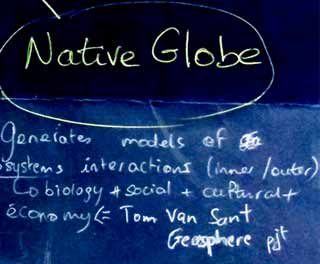 Native Globe
Generates models of
systems interactions (inner/outer)
↳ biology + social + cultural +
économy (= Tom Van Sant
Geosphere pjt